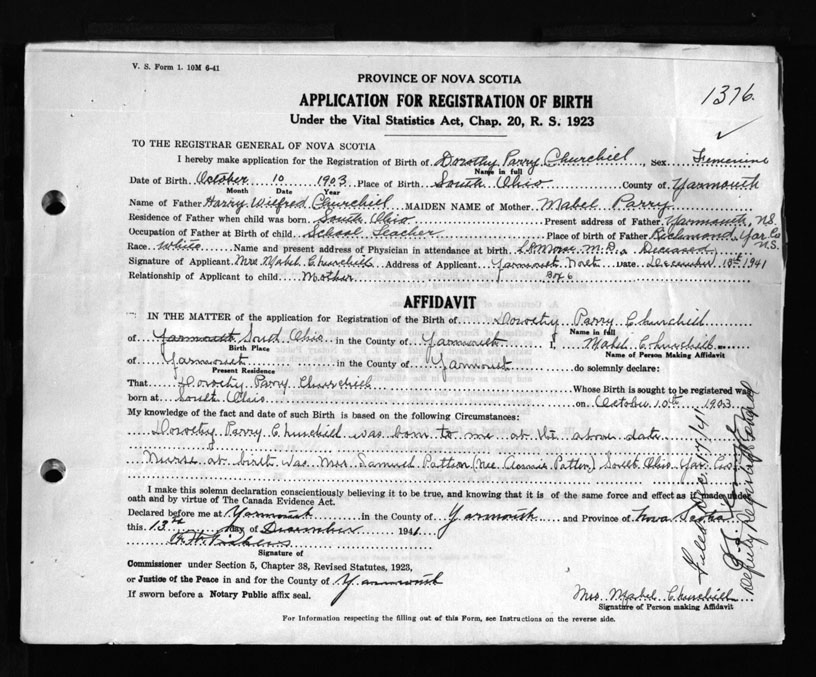 V. S. Form 1. 10M 6-41
PROVINCE OF NOVA SCOTIA
1376.
APPLICATION FOR REGISTRATION OF BIRTH
Under the Vital Statistics Act, Chap. 20, R. S. 1923
TO THE REGISTRAR GENERAL OF NOVA SCOTIA
I hereby make application for the Registration of Birth of Dorothy Parry Churchill, Sex Femenine
Name in full
Date of Birth October 10 1903 Place of Birth South Ohio County of Yarmouth
Month Date Year
Name of Father Harry Wilfred Churchill MAIDEN NAME of Mother Mabel Parry
Residence of Father when child was born South Ohio Present address of Father Yarmouth, N.S.
Occupation of Father at Birth of child School Teacher Place of birth of Father Richmond, Yar. Co. N.S.
Race White Name and present address of Physician in attendance at birth M.D., Deceased
Signature of Applicant Mrs Mabel Churchill Address of Applicant Yarmouth North Date December 13th 1941
Relationship of Applicant to child Mother Box 6
AFFIDAVIT
IN THE MATTER of the application for Registration of the Birth of Dorothy Parry Churchill
Name in full
of Yarmouth South Ohio in the County of Yarmouth I, Mabel Churchill
Birth Place Name of Person Making Affidavit
of Yarmouth in the County of Yarmouth do solemnly declare:
Present Residence
That Dorothy Parry Churchill Whose Birth is sought to be registered was
born at South Ohio on October 10th 1903
My knowledge of the fact and date of such Birth is based on the following Circumstances:
Dorothy Parry Churchill was born to me at the above date
Nurse at birth was Mrs. Samuel Patten (nee Annie Patten) South Ohio Yar. Co.
I make this solemn declaration conscientiously believing it to be true, and knowing that it is of the same force and effect as if made under
oath and by virtue of The Canada Evidence Act.
Declared before me at Yarmouth in the County of Yarmouth and Province of Nova Scotia
this 13th day of December 1941
Signature of
Commissioner under Section 5, Chapter 38, Revised Statutes, 1923,
or Justice of the Peace in and for the County of Yarmouth
If sworn before a Notary Public affix seal.
Mrs. Mabel Churchill
Signature of Person making Affidavit
For Information respecting the filling out of this Form, see Instructions on the reverse side.
Filed Dec. 17/41
Deputy Registrar General